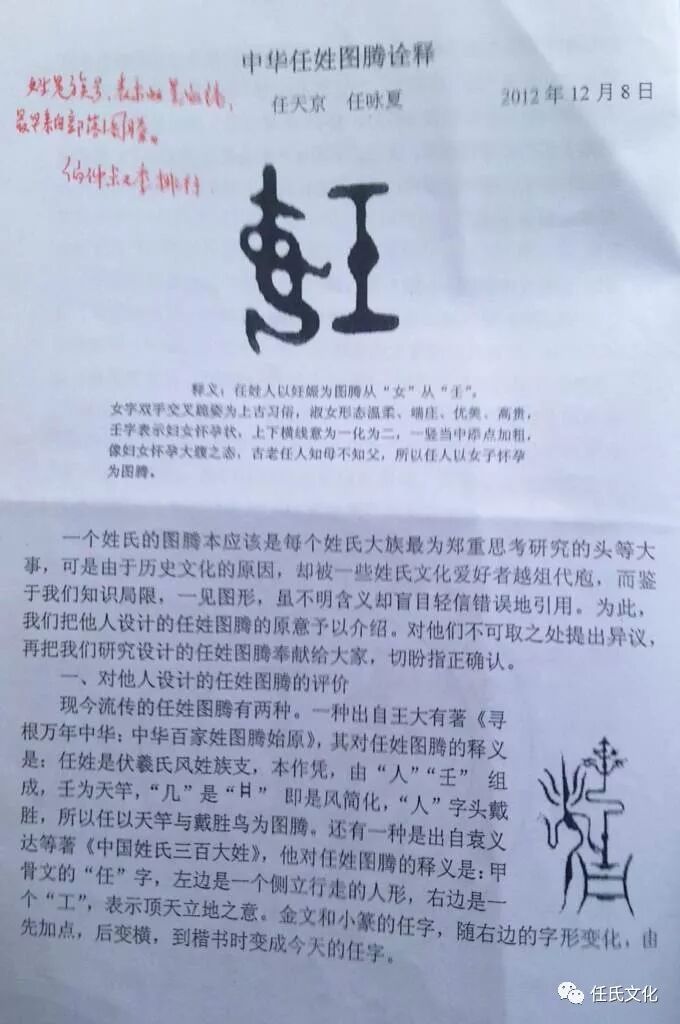 中华任姓图腾诠释
任天京 任咏夏 2012年12月8日
姓是族号,
最早来自部落图腾。
伯仲叔季排行
释义:任姓人以妊娠为图腾从“女”从“壬”。
女字双手交叉跪姿为上古习俗,淑女形态温柔、端庄、优美、高贵,
壬字表示妇女怀孕状,上下横线意为一化为二,一竖当中添点加粗,
像妇女怀孕大腹之态,古老任人知母不知父,所以任人以女子怀孕
为图腾。
一个姓氏的图腾本应该是每个姓氏大族最为郑重思考研究的头等大
事,可是由于历史文化的原因,却被一些姓氏文化爱好者越俎代庖,而鉴
于我们知识局限,一见图形,虽不明含义却盲目轻信错误地引用。为此,
我们把他人设计的任姓图腾的原意予以介绍。对他们不可取之处提出异议,
再把我们研究设计的任姓图腾奉献给大家,切盼指正确认。
一、对他人设计的任姓图腾的评价
现今流传的任姓图腾有两种。一种出自王大有著《寻
根万年中华:中华百家姓图腾始原》,其对任姓图腾的释义
是:任姓是伏羲氏风姓族支,本作凭,由“人”“壬” 组
成,壬为天竿,“几”是“ ” 即是风简化,“人”字头戴
胜,所以任以天竿与戴胜鸟为图腾。还有一种是出自袁义
达等著《中国姓氏三百大姓》,他对任姓图腾的释义是:甲
骨文的“任”字,左边是一个侧立行走的人形,右边是一
个“工”,表示顶天立地之意。金文和小篆的任字,随右边的字形变化,由
先加点,后变横,到楷书时变成今天的任字。
任氏文化